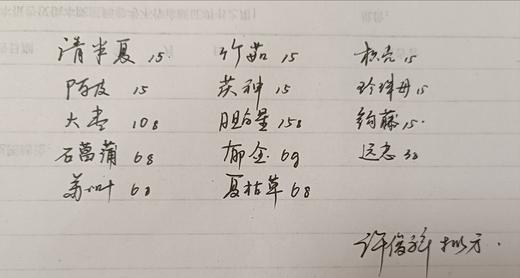 清半夏 15. 竹茹 15 枳壳 15
陈皮 15 茯神 15 珍珠母 15
大枣 10g 胆星 15g 钩藤 15.
石菖蒲 6g 郁金 6g 远志 3g
苏叶 6g 夏枯草 6g